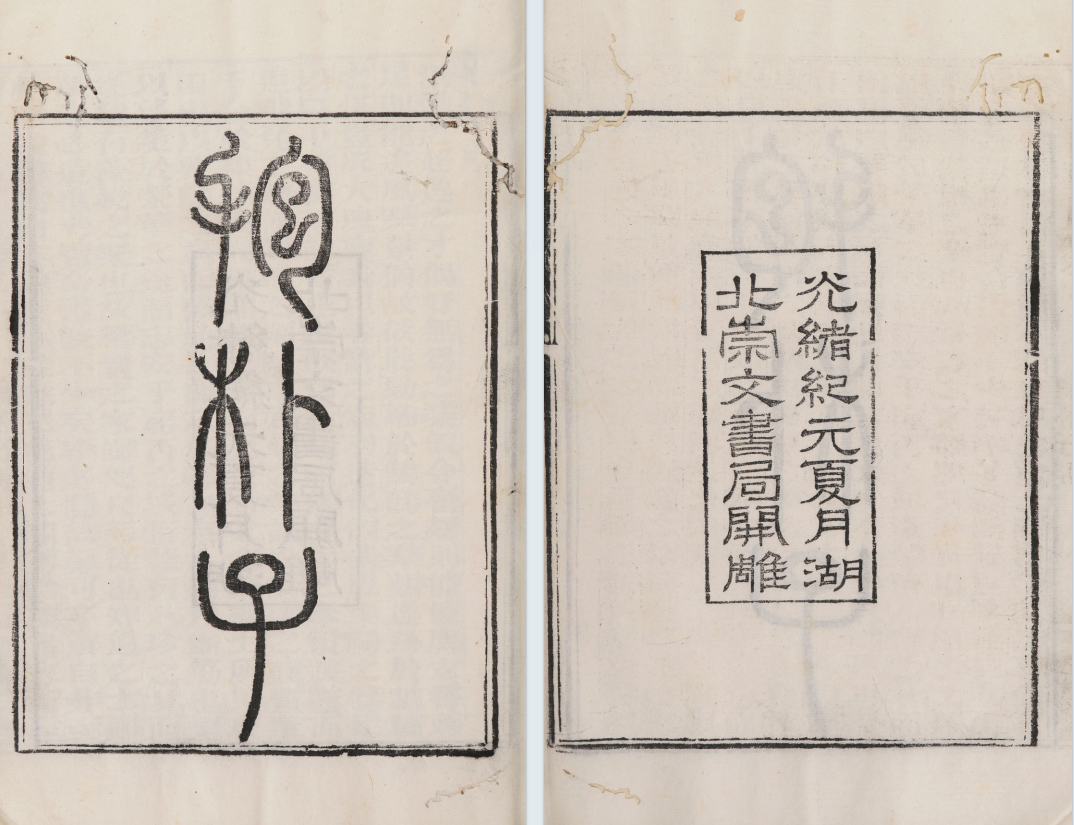 抱朴子
光緒紀元夏月湖
北崇文書局開雕